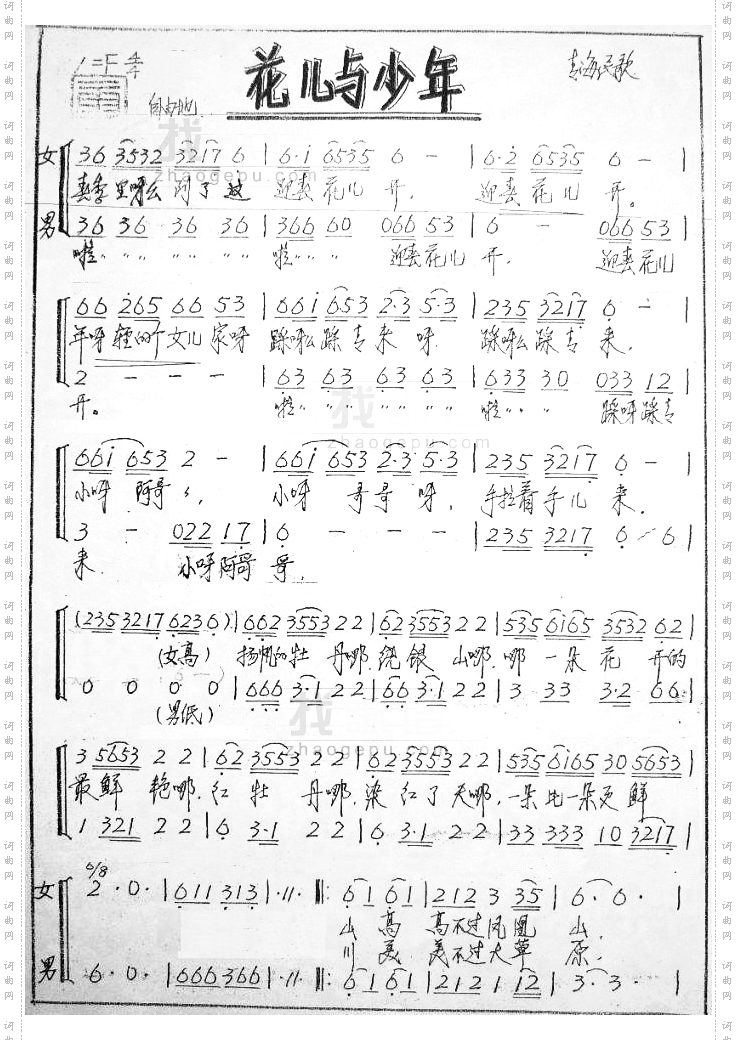 花儿与少年
1=F 4/4
青海民歌
自由地
女 36 3532 3217 6 | 6·i 6535 6 - | 6·2 6535 6 - |
春季里呀么到了这 迎春花儿开. 迎春花儿开。
男 36 36 36 36 | 366 60 066 53 | 6 - 066 53 |
啦〃〃〃 啦〃〃 迎春花儿开. 迎春花儿
66 265 66 53 | 66i 653 2·3 5·3 | 235 3217 6 - |
年呀轻的个女儿家呀 踩呀么踩青来呀. 踩呀么踩青来.
2 - - - | 63 63 63 63 | 633 30 033 12 |
开。 啦〃〃〃〃〃〃〃 啦〃〃〃 踩呀踩青
66i 653 2 - | 66i 653 2·3 5·3 | 235 3217 6 - |
小呀阿哥哥, 小呀哥哥呀, 手拉着手儿来.
3 - 022 17 | 6 - - - | 235 3217 6 - 6 |
来. 小呀阿哥哥.
(235 3217 6236) | 662 3553 22 | 62 3553 22 | 535 6i65 3532 62 |
(女高) 扬帆的牡丹哪.绕银山哪.哪一朵花开的
0 0 0 0 | 666 3·1 22 | 66 3·1 22 | 3 33 3·2 66 |
(男低)
3 5653 22 | 62 3553 22 | 62 3553 22 | 535 6i65 30 5653 |
最鲜艳哪.红牡丹哪.染红了天哪.一朵比一朵更鲜
1 321 22 | 6 3·1 22 | 6 3·1 22 | 33 333 10 3217 |
6/8
女 2· 0· | 611 313 | ·//· ‖: 61 61 | 212 3 35 | 6· 6· |
山高高不过凤凰山.
川美美不过大草原.
男 6· 0· | 666 366 | ·//· ‖: 61 61 | 212 1 12 | 3· 3· |
找
zhaogepu.com
词曲网